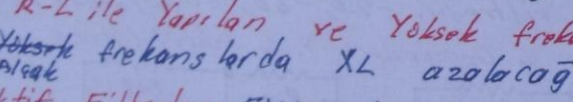 R-L ile Yapılan ve Yüksek frek
Alçak frekanslarda XL azalacağ